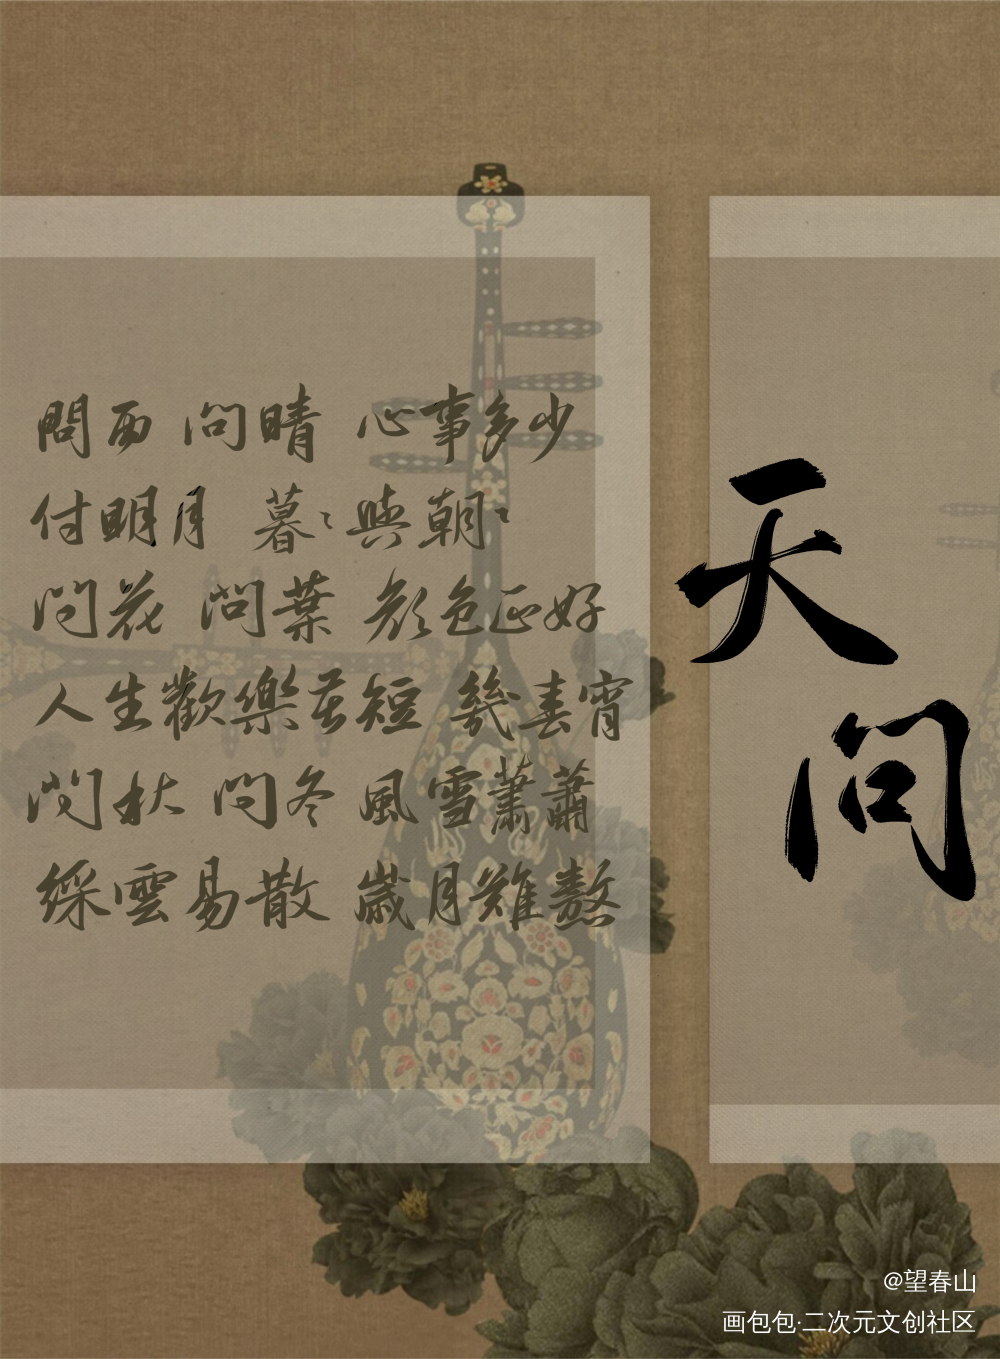 問雨 問晴 心事多少
付明月 暮〻與朝〻
問花 問葉 顏色正好
人生歡樂苦短 幾春宵
問秋 問冬 風雪蕭蕭
綵雲易散 歲月難熬
天問
@望春山
画包包·二次元文创社区